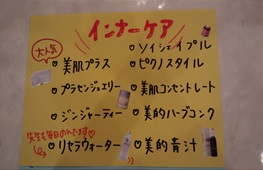 インナーケア
大人気
・美肌プラス
・プラセンジュエリー
・ジンジャーティー
・リセラウォーター
・ソイシェイプル
・ピクノスタイル
・美肌コンセントレート
・美的ハーブコンク
・美的青汁